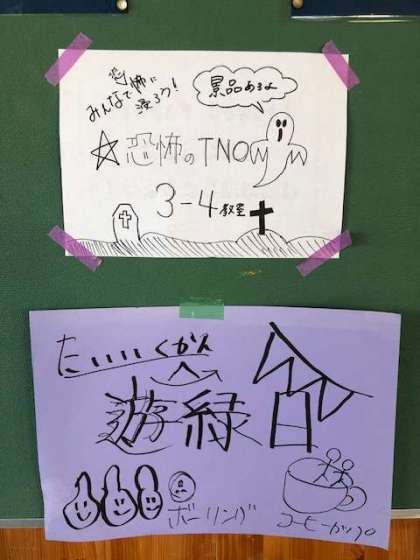 恐怖に
みんなで凍ろう!
景品あるよ
☆恐怖のTNO
3-4教室
たいいくかん
遊縁会
ボーリング
コーヒーカップ